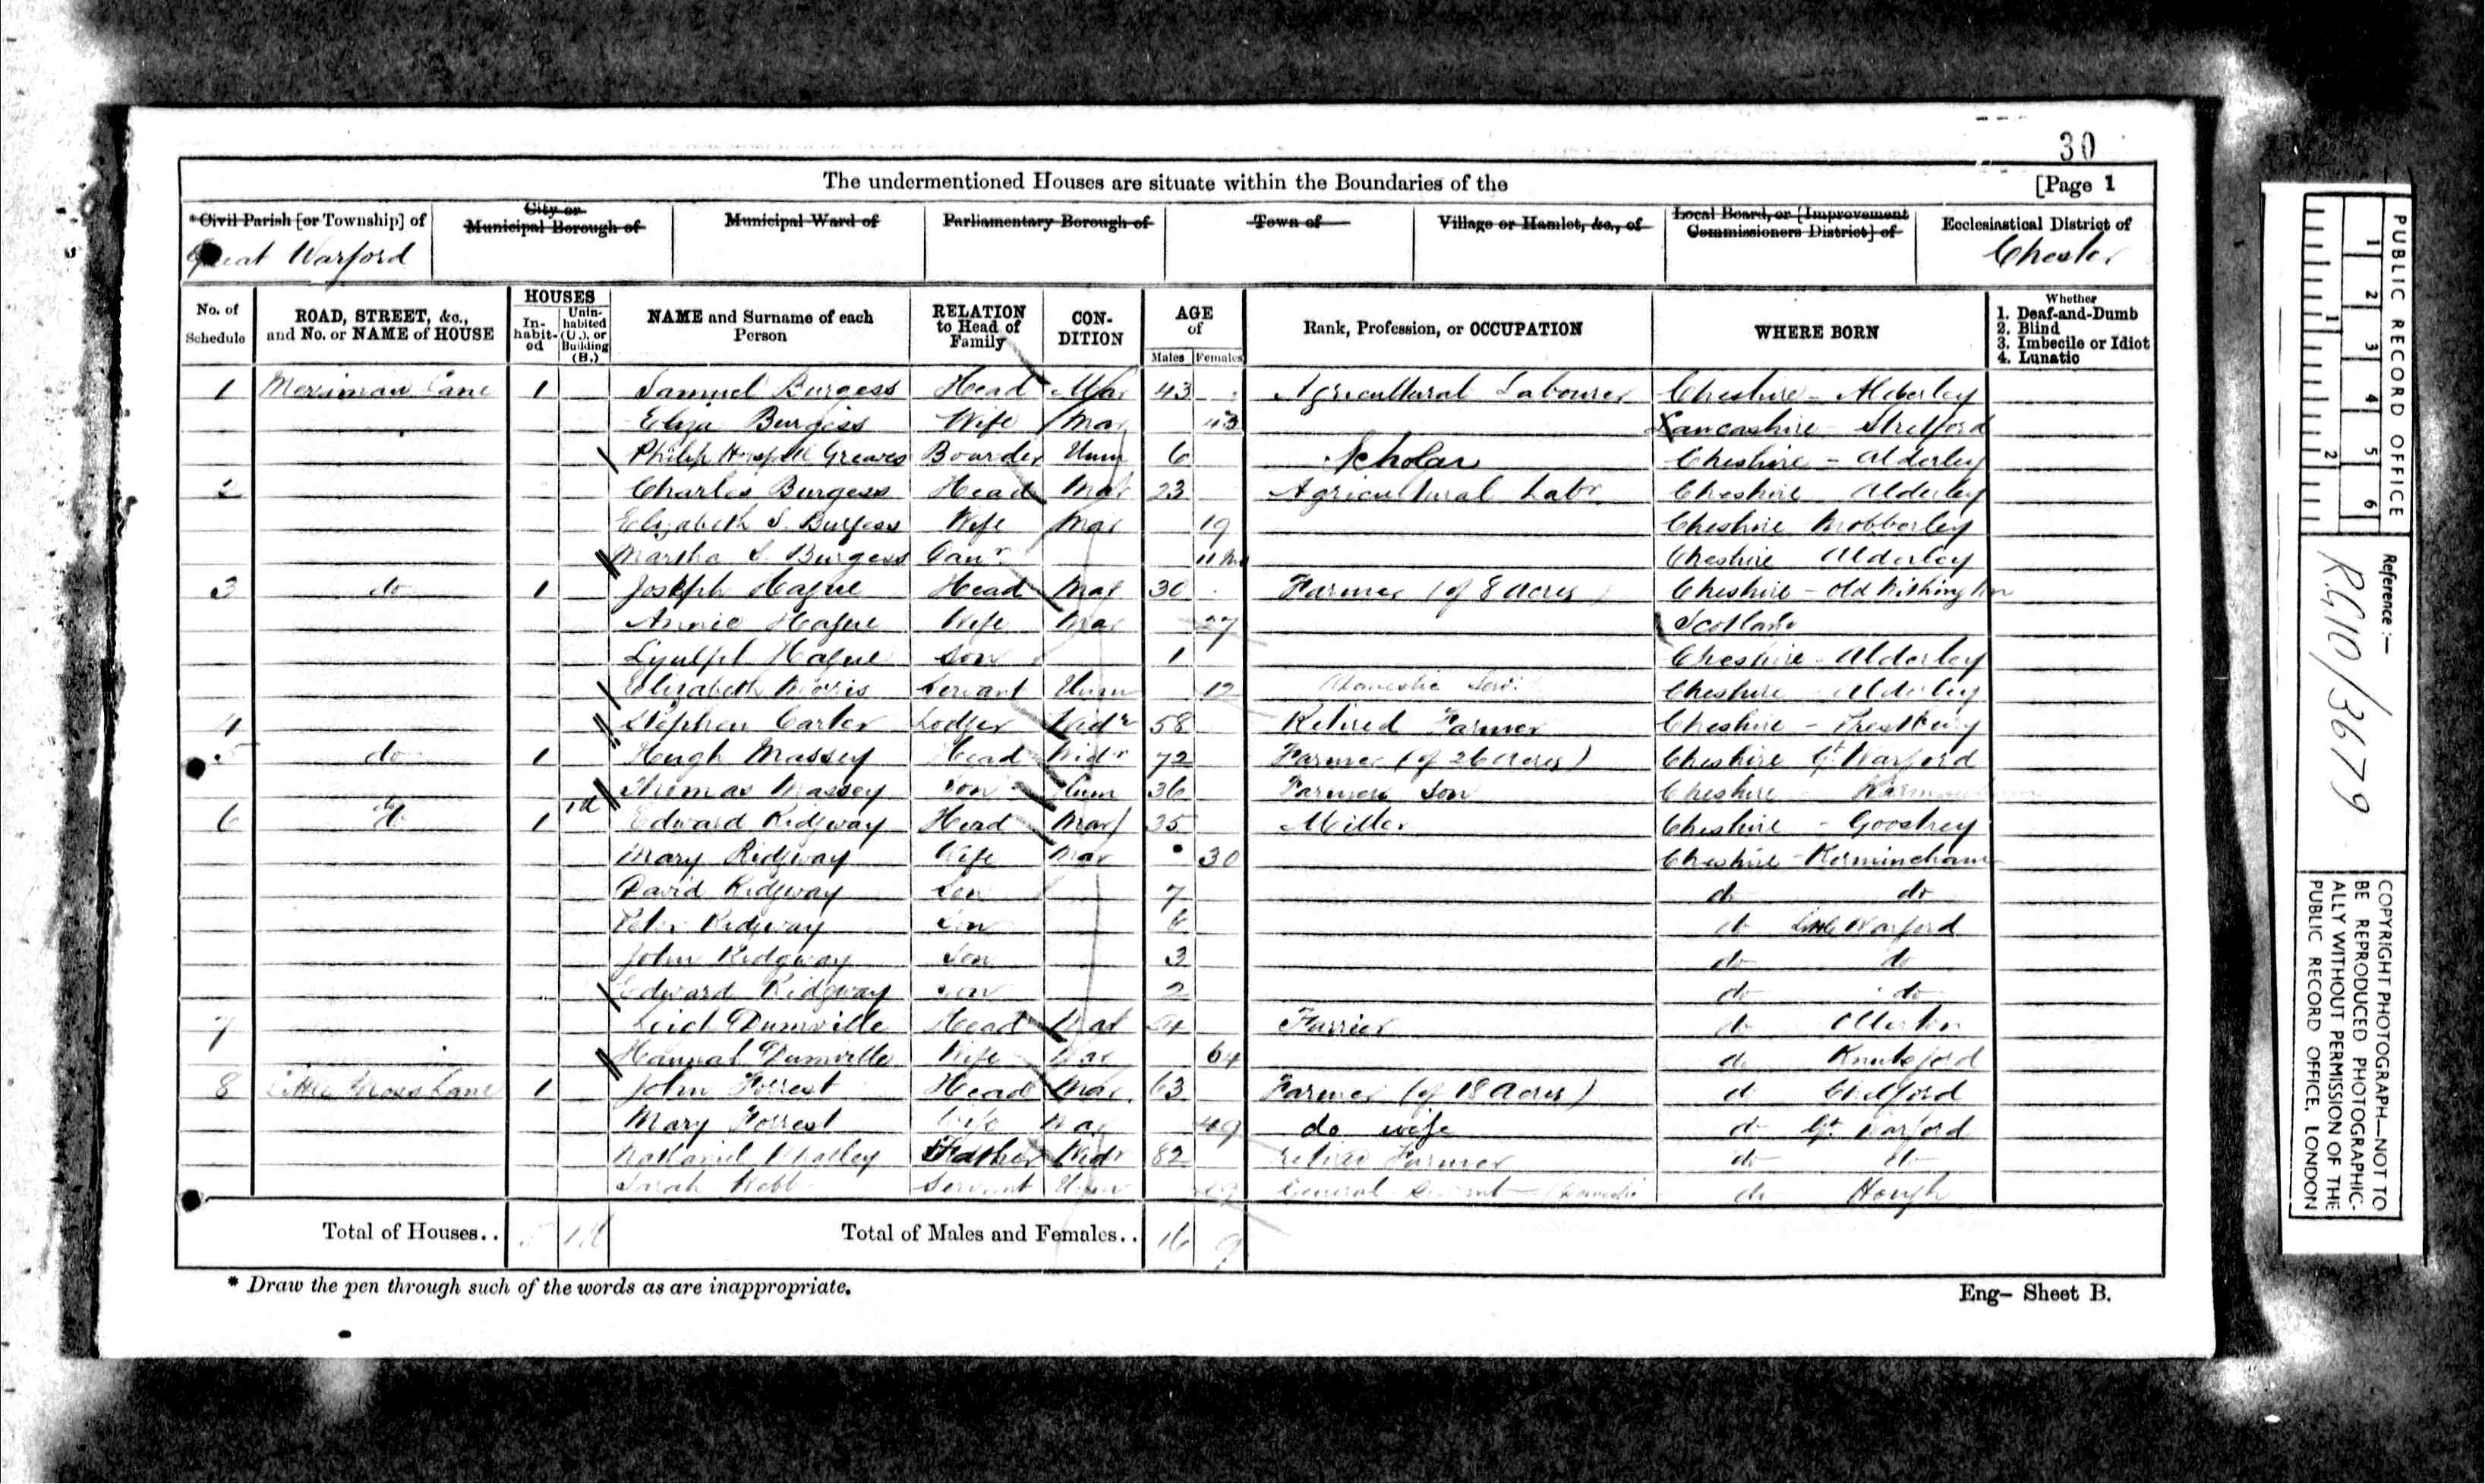 30
The undermentioned Houses are situate within the Boundaries of the [Page 1
*Civil Parish [or Township] of City or Municipal Borough of Municipal Ward of Parliamentary Borough of Town of Village or Hamlet, &c., of Local Board, or [Improvement Commissioners District] of Ecclesiastical District of
Great Warford Chester
No. of Schedule ROAD, STREET, &c., and No. or NAME of HOUSE HOUSES Inhabited Uninhabited (U.), or Building (B.) NAME and Surname of each Person RELATION to Head of Family CONDITION AGE of Males Females Rank, Profession, or OCCUPATION WHERE BORN Whether 1. Deaf-and-Dumb 2. Blind 3. Imbecile or Idiot 4. Lunatic
1 Merriman Lane 1 Samuel Burgess Head Mar 43 Agricultural Labourer Cheshire - Alderley
Eliza Burgess Wife Mar 43 Lancashire - Stretford
Philip Greaves Boarder Unm 6 Scholar Cheshire - Alderley
2 Charles Burgess Head Mar 23 Agricultural Labr Cheshire Alderley
Elizabeth S. Burgess Wife Mar 19 Cheshire Mobberley
Martha S. Burgess Daur 11 Mo Cheshire Alderley
3 do 1 Joseph Hague Head Mar 30 Farmer (of 8 Acres) Cheshire - Old Withington
Annie Hague Wife Mar 27 Scotland
Hague Son 1 Cheshire - Alderley
Elizabeth Morris Servant Unm 12 Domestic Serv. Cheshire - Alderley
4 Stephen Carter Lodger Widr 58 Retired Farmer Cheshire - Prestbury
5 do 1 Hugh Massey Head Widr 72 Farmer (of 26 Acres) Cheshire Gt. Warford
Thomas Massey Son Unm 36 Farmers Son Cheshire
6 do 1 1d Edward Ridgway Head Mar 35 Miller Cheshire - Goostrey
Mary Ridgway Wife Mar 30 Cheshire - Kermincham
David Ridgway Son 7 do do
Peter Ridgway Son 6 do Little Warford
John Ridgway Son 3 do do
Edward Ridgway Son 2 do do
7 Dumville Head Mar Farrier do Ollerton
Hannah Dumville Wife Mar 64 do Knutsford
8 Little Moss Lane 1 John Forrest Head Mar 63 Farmer (of 18 Acres) do Chelford
Mary Forrest Wife Mar 49 do wife do Gt. Warford
Nathaniel Father Widr 82 Retired Farmer do do
Sarah Webb Servant Unm General Servant (Domestic do Hough
Total of Houses.. 5 1d Total of Males and Females.. 16 9
* Draw the pen through such of the words as are inappropriate.
Eng- Sheet B.
PUBLIC RECORD OFFICE
1 2 3 4 5 6
1 2
Reference :-
RG10/3679
COPYRIGHT PHOTOGRAPH-NOT TO
BE REPRODUCED PHOTOGRAPHIC-
ALLY WITHOUT PERMISSION OF THE
PUBLIC RECORD OFFICE, LONDON